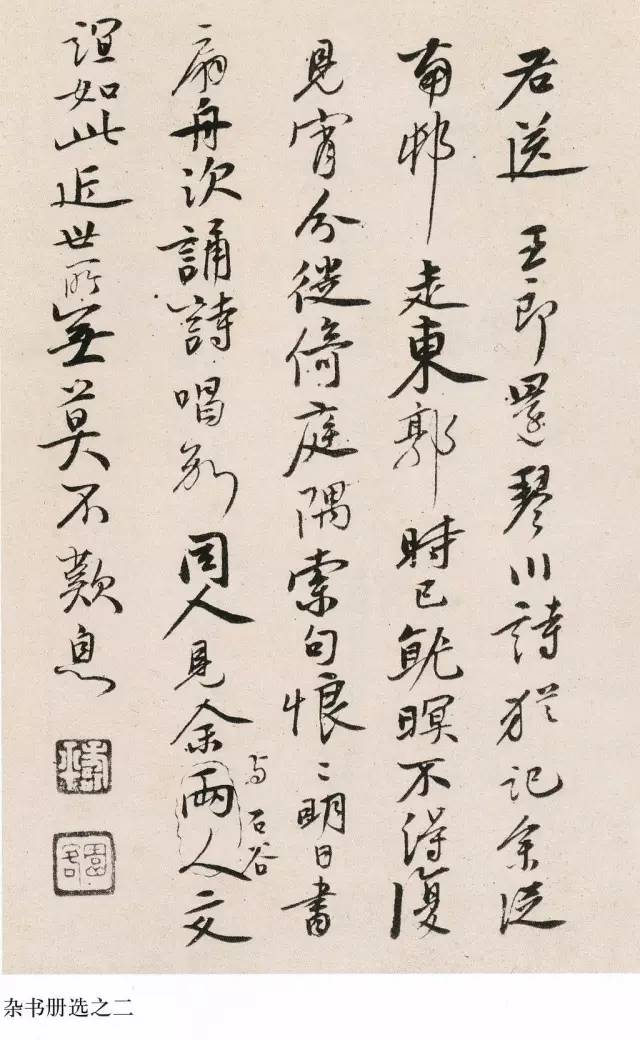 右送 王郎還琴川詩猶記余從
南邨走東郭時已就暝不得復
見宵分徙倚庭隅索句悢〻明日書
扇舟次誦詩唱別同人見余兩人交
与石谷
誼如此近世所無莫不歎息
壽平
園客
杂书册选之二